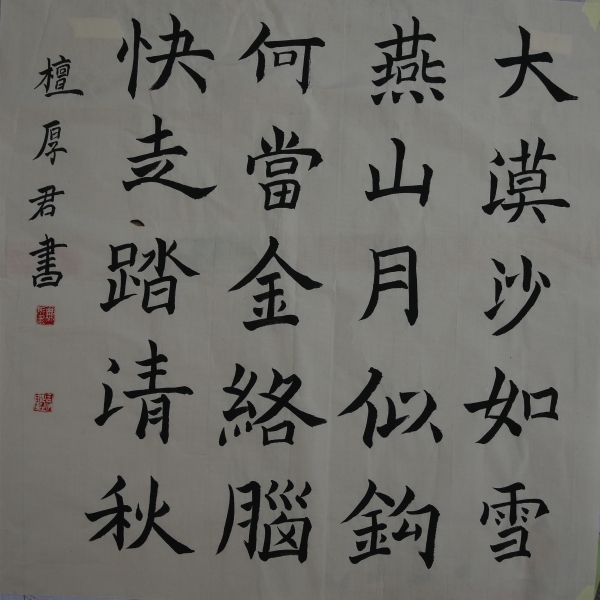 大漠沙如雪
燕山月似鈎
何當金絡腦
快走踏清秋
檀厚君書